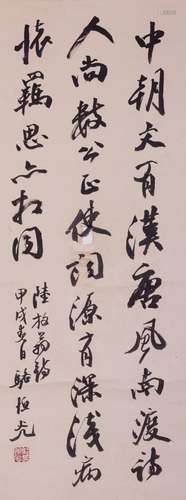 中朝文有漢唐風南渡詩
人尚數公正使詞源有深淺病
懷羈思亦相同
陸放翁詩
甲戌春日駱恒光